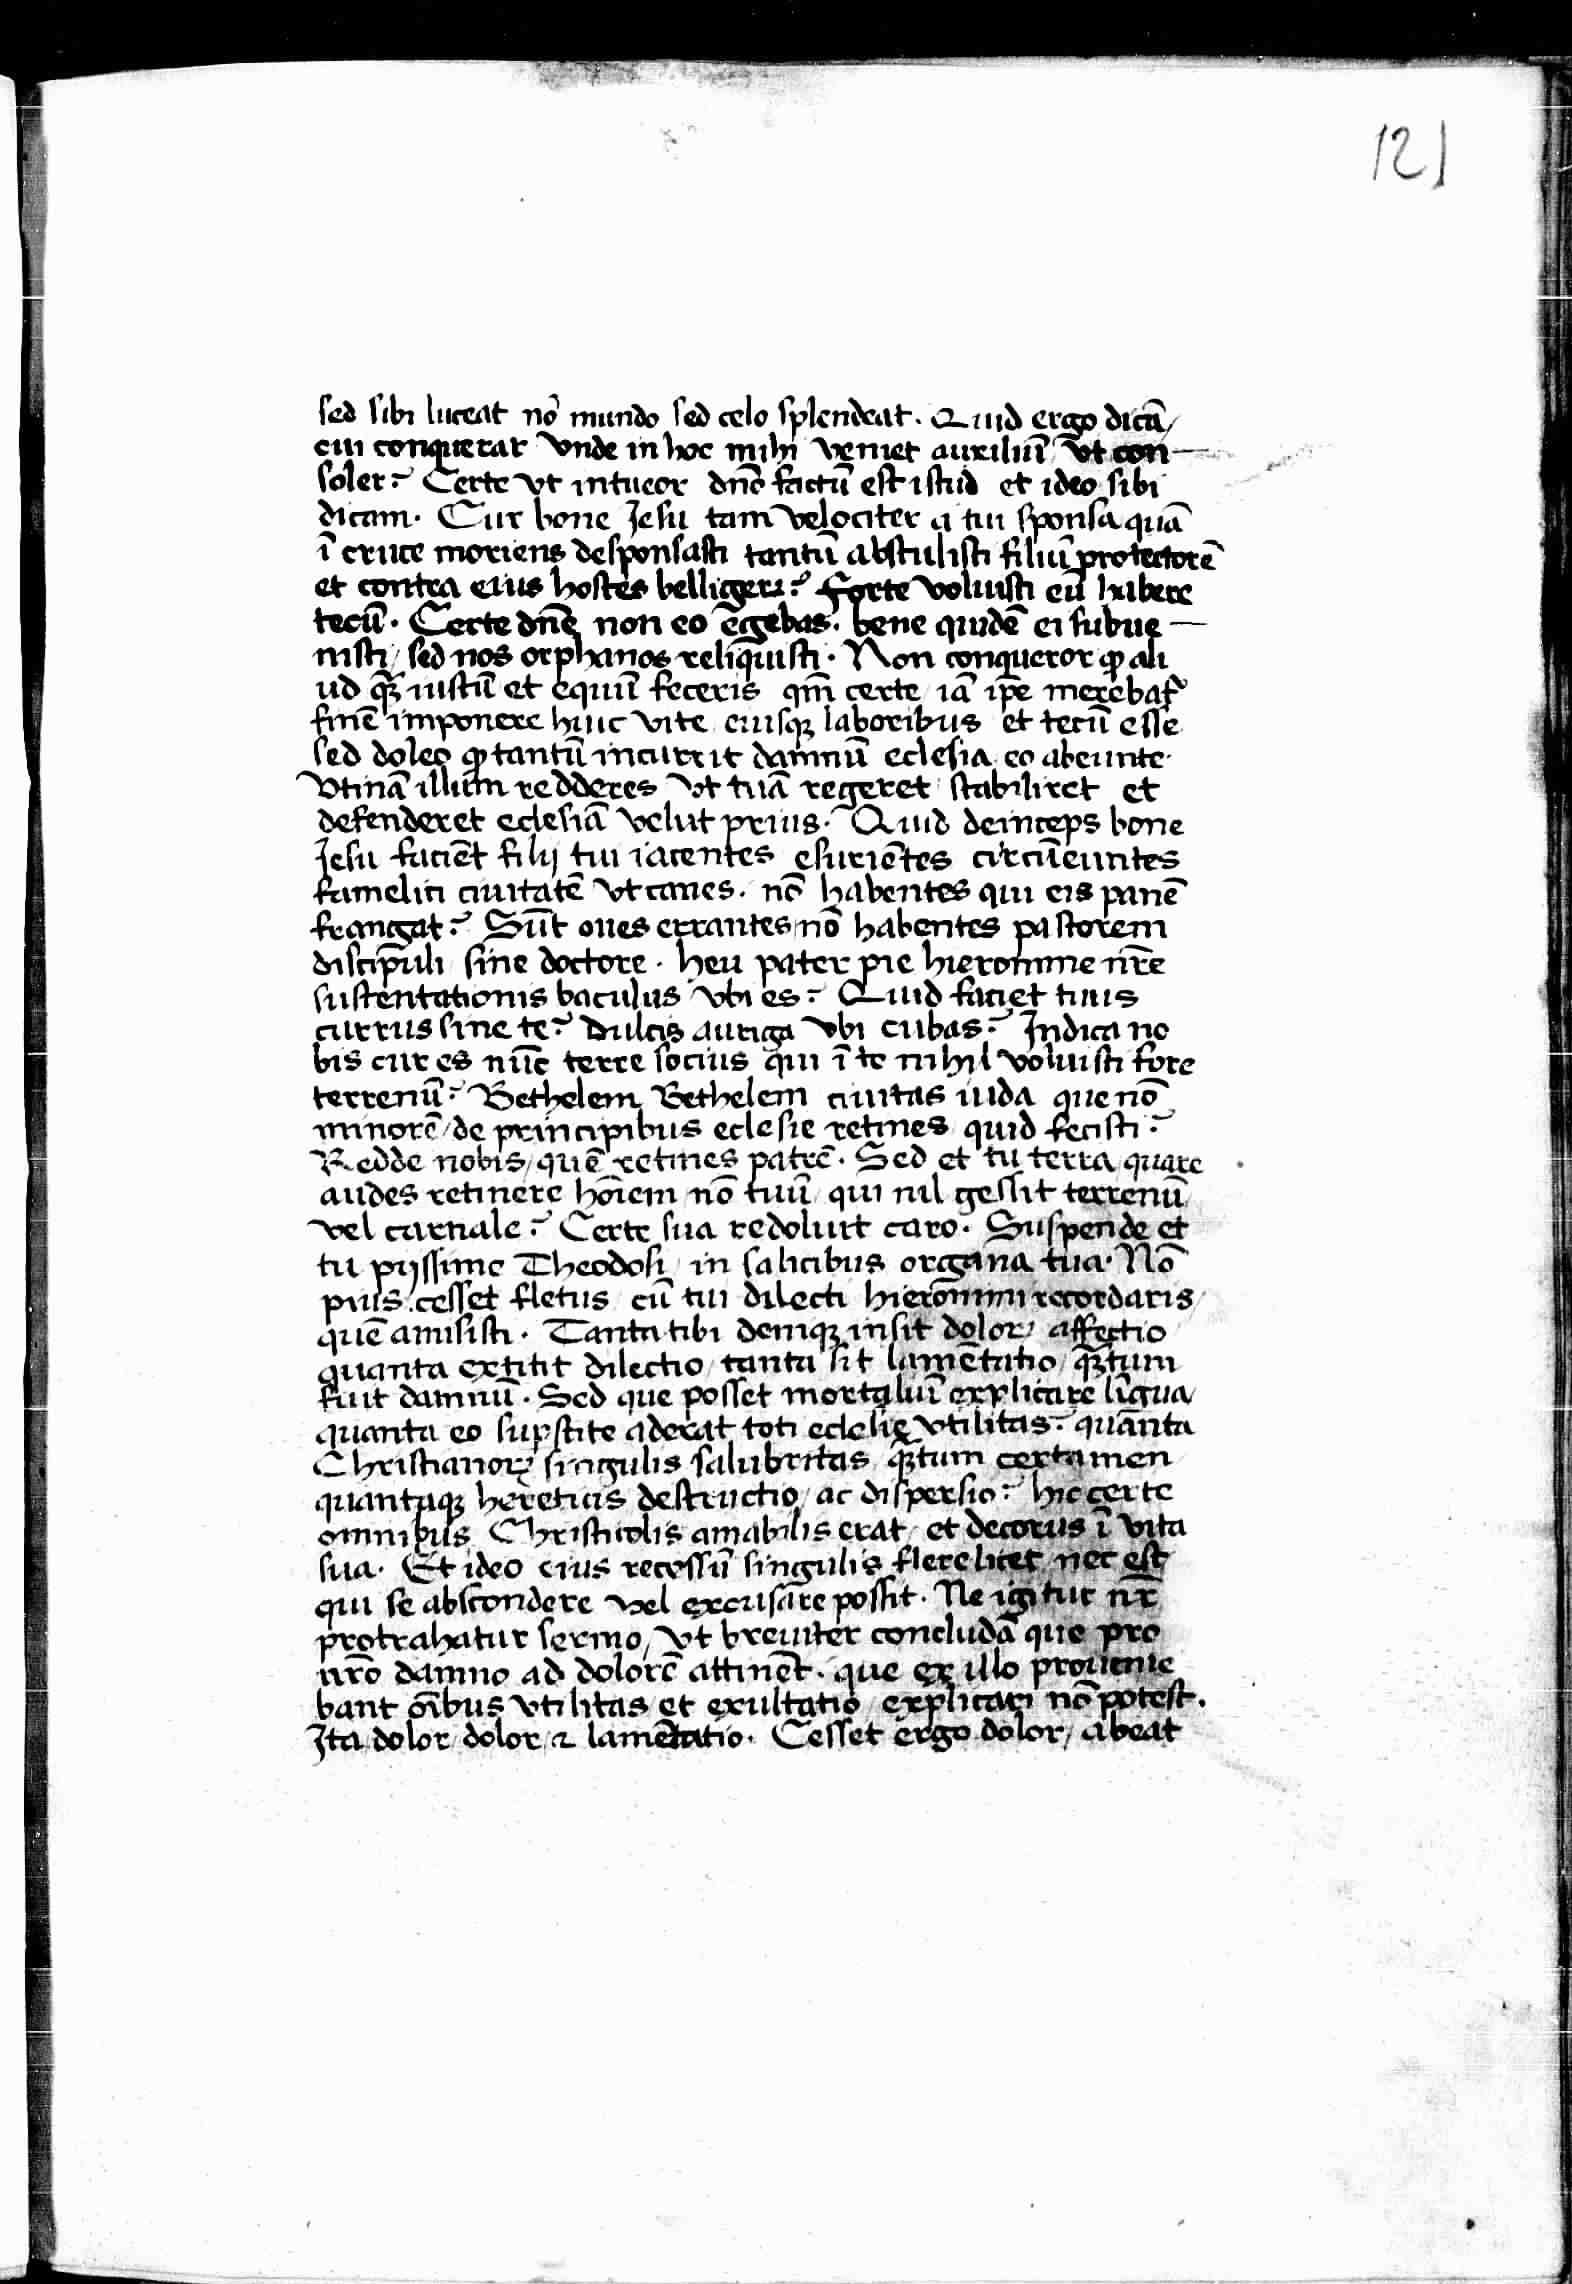 121
sed sibi luceat nō mundo sed celo splendeat. Quid ergo dicā/
cui conquerar vnde in hoc mihi veniet auxiliū/ vt con-
soler? Certe vt intueor dn̄o factū est istud et ideo sibi
dicam. Cur bone Jesu tam velociter a tui sponsa quā
ī cruce moriens desponsasti tantū abstulisti filiū protectorē
et contra eius hostes belligerū? Forte voluisti eū habere
tecū. Certe dn̄e non eo egebas. bene quidē ei subue-
nisti/ sed nos orphanos reliquisti. Non conqueror ꝙ ali
ud qꝫ iustū et equū feceris qm̄ certe/ iā ip̄e merebat᷑
finē imponere huic vite eiusqꝫ laboribus et tecū esse
sed doleo ꝙ tantū incurrit damnū eclesia eo abeunte.
vtinā illum redderes vt tuā regeret stabiliret et
defenderet eclesiā velut prius. Quid deinceps bone
Jesu faciēt filij tui iacentes esuriētes circūeuntes
famelici ciuitatē vt canes. nō habentes qui eis panē
frangat? Sūt oues errantes/ nō habentes pastorem
discipuli/ sine doctore. heu pater pie hieronime nr̄e
sustentationis baculus vbi es? Quid faciet tuus
currus sine te? Dulcis auriga vbi cubas? Indica no
bis cur es nūc terre socius qui ī te nihil voluisti fore
terrenū? Bethelem Bethelem ciuitas iuda que nō
minorē/ de principibus eclesie retines quid fecisti?
Redde nobis/ quē retines patrē. Sed et tu terra quare
audes retinere hōiem/ nō tuū/ qui nil gessit terrenū
vel carnale? Certe sua redoluit caro. Suspende et
tu pijssime Theodosi/ in salicibus organa tua. Nō
prius cesset fletus/ cū tui dilecti hierōnimi recordaris/
quē amisisti. Tanta tibi deniqꝫ insit dolor/ affectio
quanta extitit dilectio/ tanta sit lamētatio/ qꝫtum
fuit damnū. Sed que posset mortaliū explicare līgua/
quanta eo supstite aderat toti eclesię vtilitas? quanta
Christianoꝝ singulis salubritas qꝫtum certamen
quantaqꝫ hereticis destructio/ ac dispersio? hic certe
omnibus Christicolis amabilis erat/ et decorus ī vita
sua. Et ideo eius recessū singulis flere licet nec est
qui se abscondere vel excusare possit. Ne igitur nr̄
protrahatur sermo/ vt breuiter concludā que pro
nr̄o damno ad dolorē attinēt. que ex illo prouenie
bant oībus vtilitas/ et exultatio/ explicari nō potest.
Ita dolor/ dolor/ ⁊ lamētatio. Cesset ergo dolor/ abeat